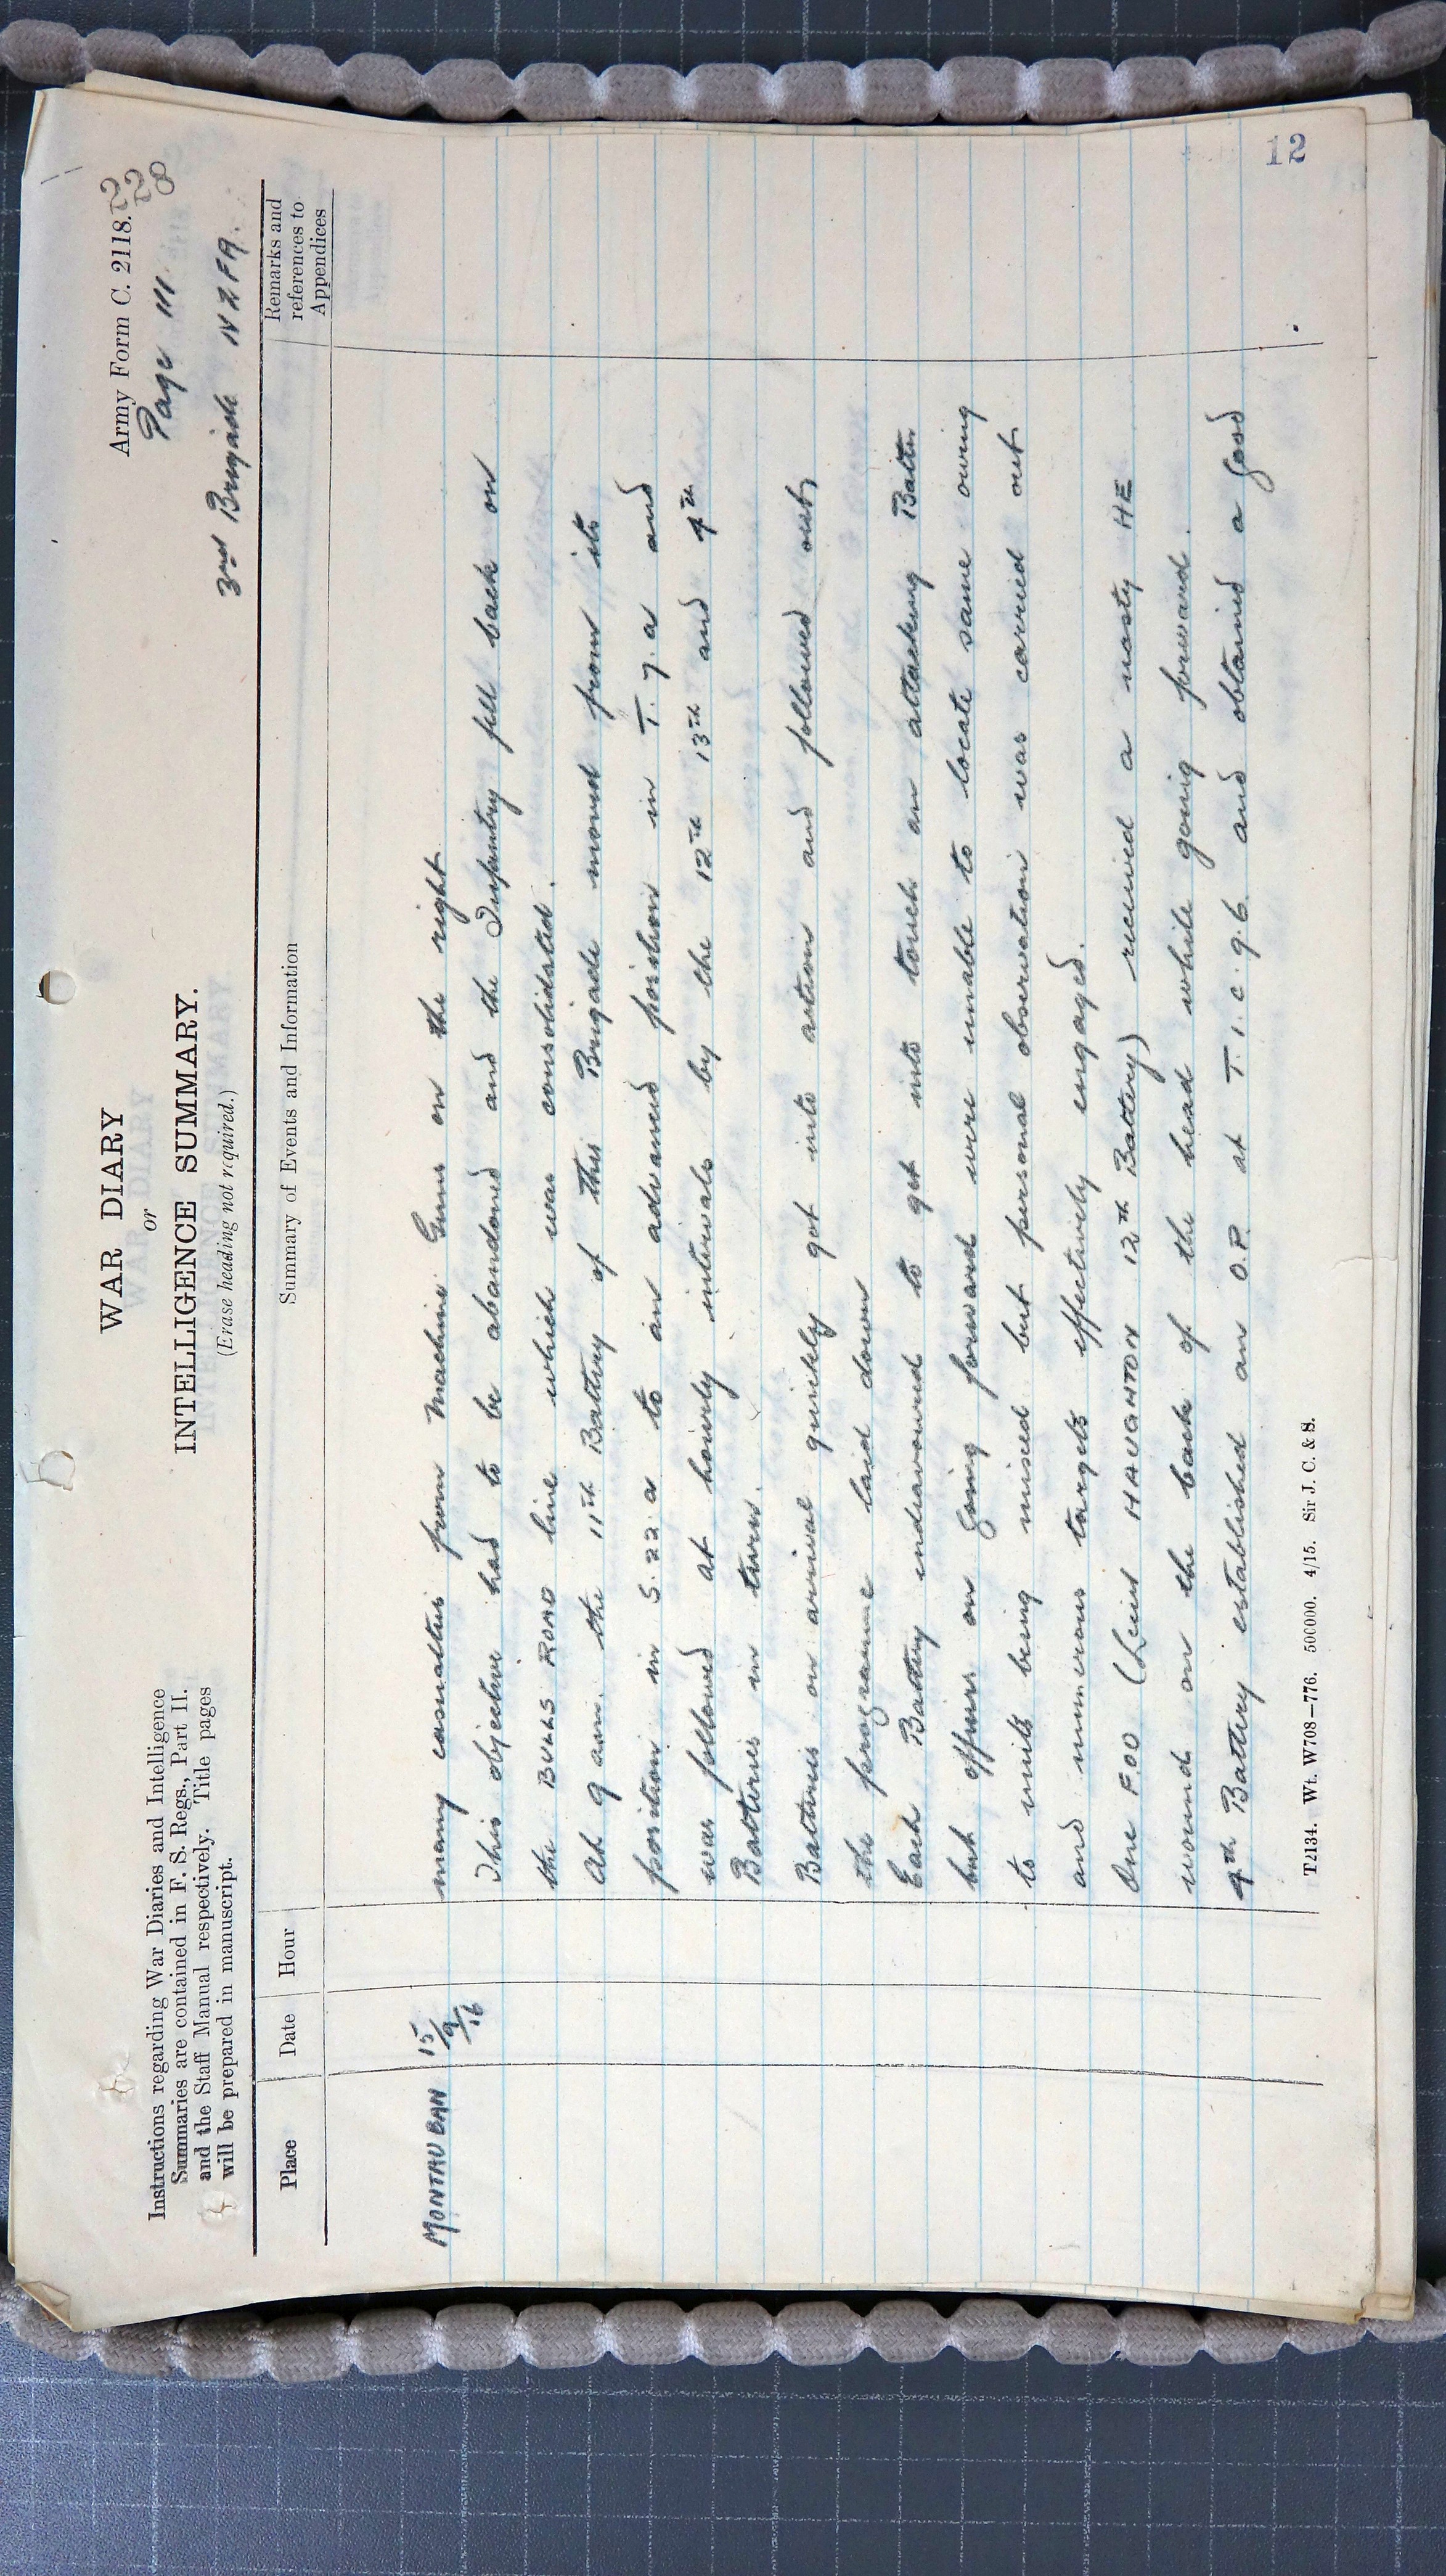 Army Form C. 2118.
228
WAR DIARY
or
INTELLIGENCE SUMMARY.
(Erase heading not required.)
Page III
3rd Brigade NZFA.
Instructions regarding War Diaries and Intelligence
Summaries are contained in F. S. Regs., Part II.
and the Staff Manual respectively. Title pages
will be prepared in manuscript.
Place Date Hour Summary of Events and Information Remarks and references to Appendices
MONTAUBAN 15/9/16 many casualties from Machine Guns on the right
This objective had to be abandoned and the Infantry fell back on
the BULLS ROAD line which was consolidated.
At 9 am. the 11th Battery of this Brigade moved from its
position in S.22.a to an advanced position in T.7.a and
was followed at hourly intervals by the 12th 13th and 4th
Batteries in turn.
Batteries on arrival quickly got into action and followed out
the programme laid down
Each Battery endeavoured to get into touch an attacking Battn
but officers on going forward were unable to locate same owing
to units being mixed but personal observation was carried out
and numerous targets effectively engaged.
One FOO (Lieut HAUGHTON 12th Battery) received a nasty HE
wound on the back of the head while going forward.
4th Battery established an O.P. at T.1.c.9.6 and obtained a good
T2134. Wt. W708—776. 500000. 4/15. Sir J. C. & S.
12